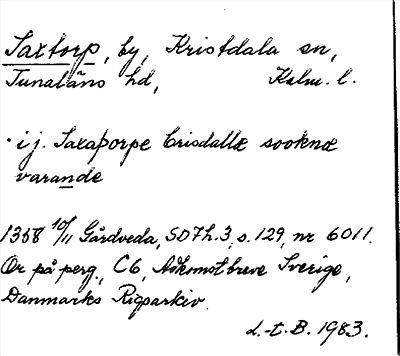 Saxtorp, by, Kristdala sn,
Tunaläns hd, Kalm. l.
· ij. Saxaþorpe Crisdallæ sooknæ
varande
1358 10/11 Gårdveda, SD7h.3, s. 129, nr 6011.
Or på perg., C6, Adkomstbreve Sverige,
Danmarks Rigsarkiv.
d.-t. B. 1983.